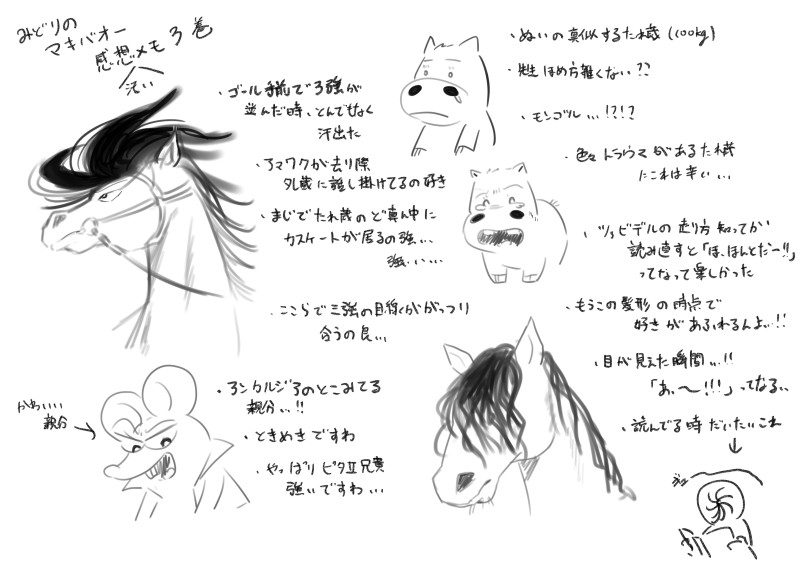 みどりの
マキバオー
感想メモ3巻
汚い
・ゴール手前で3強が
並んだ時、とんでもなく
汗出た
・アマワクが去り際
タレ蔵に話し掛けてるの好き
・まじでたれ蔵のど真ん中に
カスケードが居るの強...
強い...
・ここらで三強の目線ががっつり
合うの良...
かわいい
親分
・アンカルジアのとこみてる
親分...!!
・ときめきですわ
・やっぱりピタⅡ兄貴
強いですわ...
・ぬいの真似するたれ蔵(100kg)
・先生ほめ方雑くない??
・モンゴル...!?!?
・色々トラウマがあるたれ蔵
にこれは辛い...
・ツァビデルの走り方知ってから
読み直すと「ほ、ほんとだー!!」
ってなって楽しかった
・もうこの髪形の時点で
好きがあふれるんよ...!!
・目が見えた瞬間...!!
「あぁ〜!!!」ってなる...
・読んでる時だいたいこれ